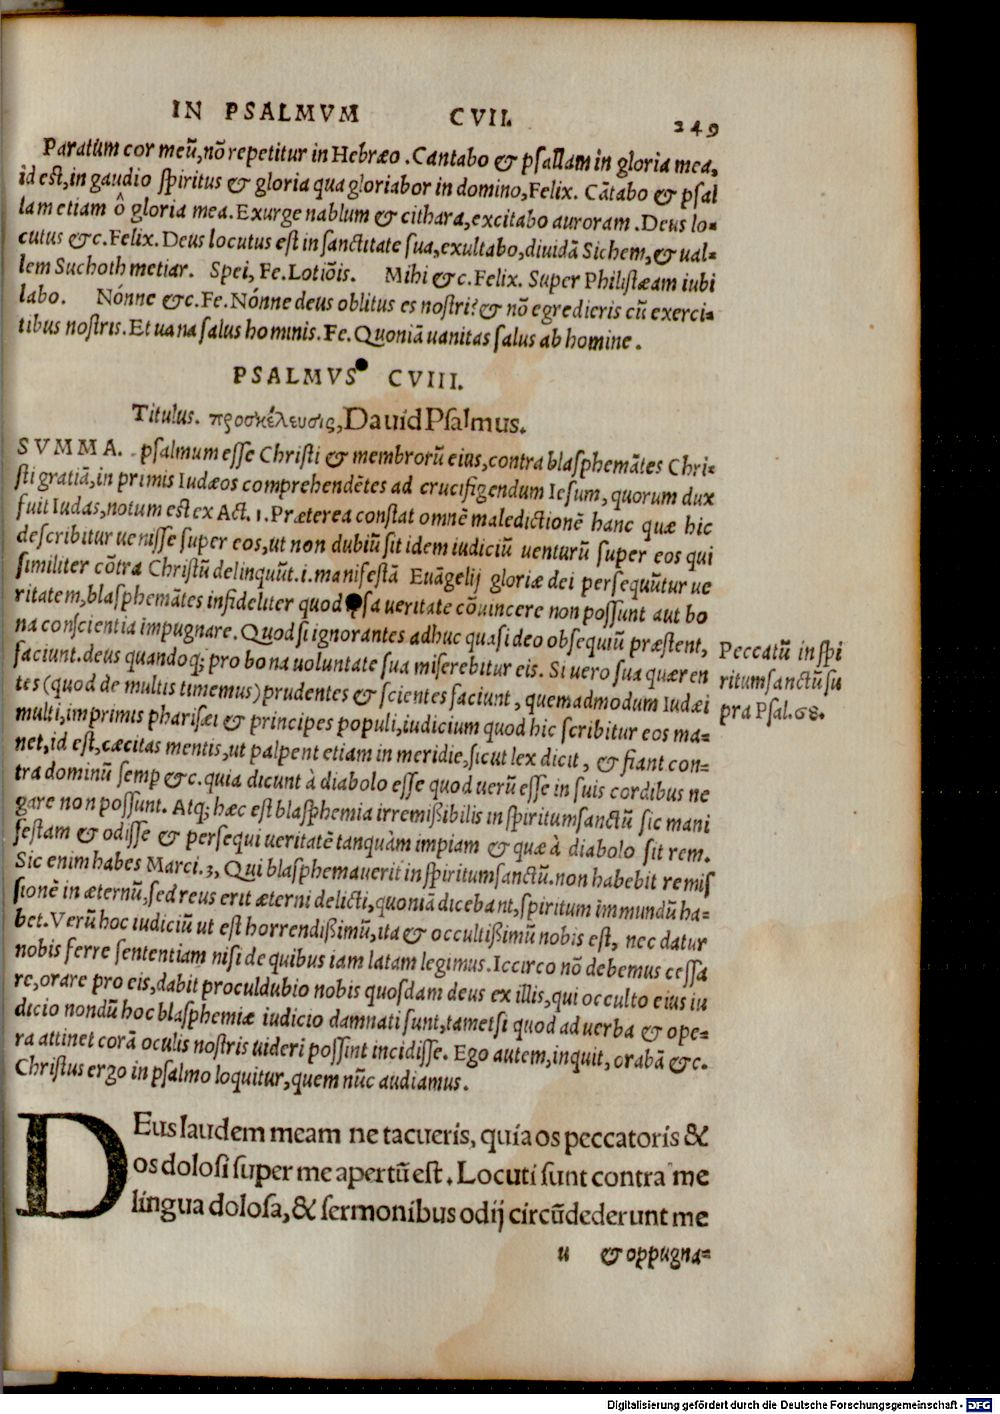 IN PSALMVM CVII. 249
Paratum cor meũ, nõ repetitur in Hebræo. Cantabo & psallam in gloria mea,
id est, in gaudio spiritus & gloria qua gloriabor in domino, Felix. Cãtabo & psal
lam etiam ô gloria mea. Exurge nablum & cithara, excitabo auroram. Deus lo-
cutus &c. Felix. Deus locutus est in sanctitate sua, exultabo, diuidã Sichem, & ual-
lem Suchoth metiar. Spei, Fe. Lotiõis. Mihi &c. Felix. Super Philistæam iubi
labo. Nónne &c. Fe. Nónne deus oblitus es nostri? & nõ egredieris cũ exerci-
tibus nostris. Et uana salus hominis. Fe. Quoniã uanitas salus ab homine.
PSALMVS CVIII.
Titulus. προσκέλευσις, Dauid Psalmus.
SVMMA. psalmum esse Christi & membrorũ eius, contra blasphemãtes Chri-
sti gratiã, in primis Iudæos comprehendẽtes ad crucifigendum Iesum, quorum dux
fuit Iudas, notum est ex Act. 1. Præterea constat omnẽ maledictionẽ hanc quæ hic
describitur uenisse super eos, ut non dubiũ sit idem iudiciũ uenturũ super eos qui
similiter cõtra Christũ delinquũt. i. manifestã Euãgelij gloriæ dei persequũtur ue
ritatem, blasphemãtes infideliter quod sa ueritate cõuincere non possunt aut bo
na conscientia impugnare. Quod si ignorantes adhuc quasi deo obsequiũ præstent,
faciunt. deus quandoq; pro bona uoluntate sua miserebitur eis. Si uero sua quæren
tes (quod de multis timemus) prudentes & scientes faciunt, quemadmodum Iudæi
multi, imprimis pharisæi & principes populi, iudicium quod hic scribitur eos ma-
net, id est, cæcitas mentis, ut palpent etiam in meridie, sicut lex dicit, & fiant con-
tra dominũ semp &c. quia dicunt à diabolo esse quod uerũ esse in suis cordibus ne
gare non possunt. Atq; hæc est blasphemia irremißibilis in spiritumsanctũ sic mani
festam & odisse & persequi ueritatẽ tanquàm impiam & quæ à diabolo sit rem.
Sic enim habes Marci. 3, Qui blasphemauerit in spiritumsanctũ. non habebit remis
sionẽ in æternũ, sed reus erit æterni delicti, quoniã dicebant, spiritum immundũ ha-
bet. Verũ hoc iudiciũ ut est horrendißimũ, ita & occultißimũ nobis est, nec datur
nobis ferre sententiam nisi de quibus iam latam legimus. Iccirco nõ debemus cessa
re, orare pro eis, dabit proculdubio nobis quosdam deus ex illis, qui occulto eius iu
dicio nondũ hoc blasphemiæ iudicio damnati sunt, tametsi quod ad uerba & ope-
ra attinet corã oculis nostris uideri possint incidisse. Ego autem, inquit, orabã &c.
Christus ergo in psalmo loquitur, quem nũc audiamus.
Peccatũ in spi
ritumsanctũ su
pra Psal. 68.
DEus laudem meam ne tacueris, quia os peccatoris &
os dolosi super me apertũ est. Locuti sunt contra me
lingua dolosa, & sermonibus odij circũdederunt me
u & oppugna-
Digitalisierung gefördert durch die Deutsche Forschungsgemeinschaft - DFG